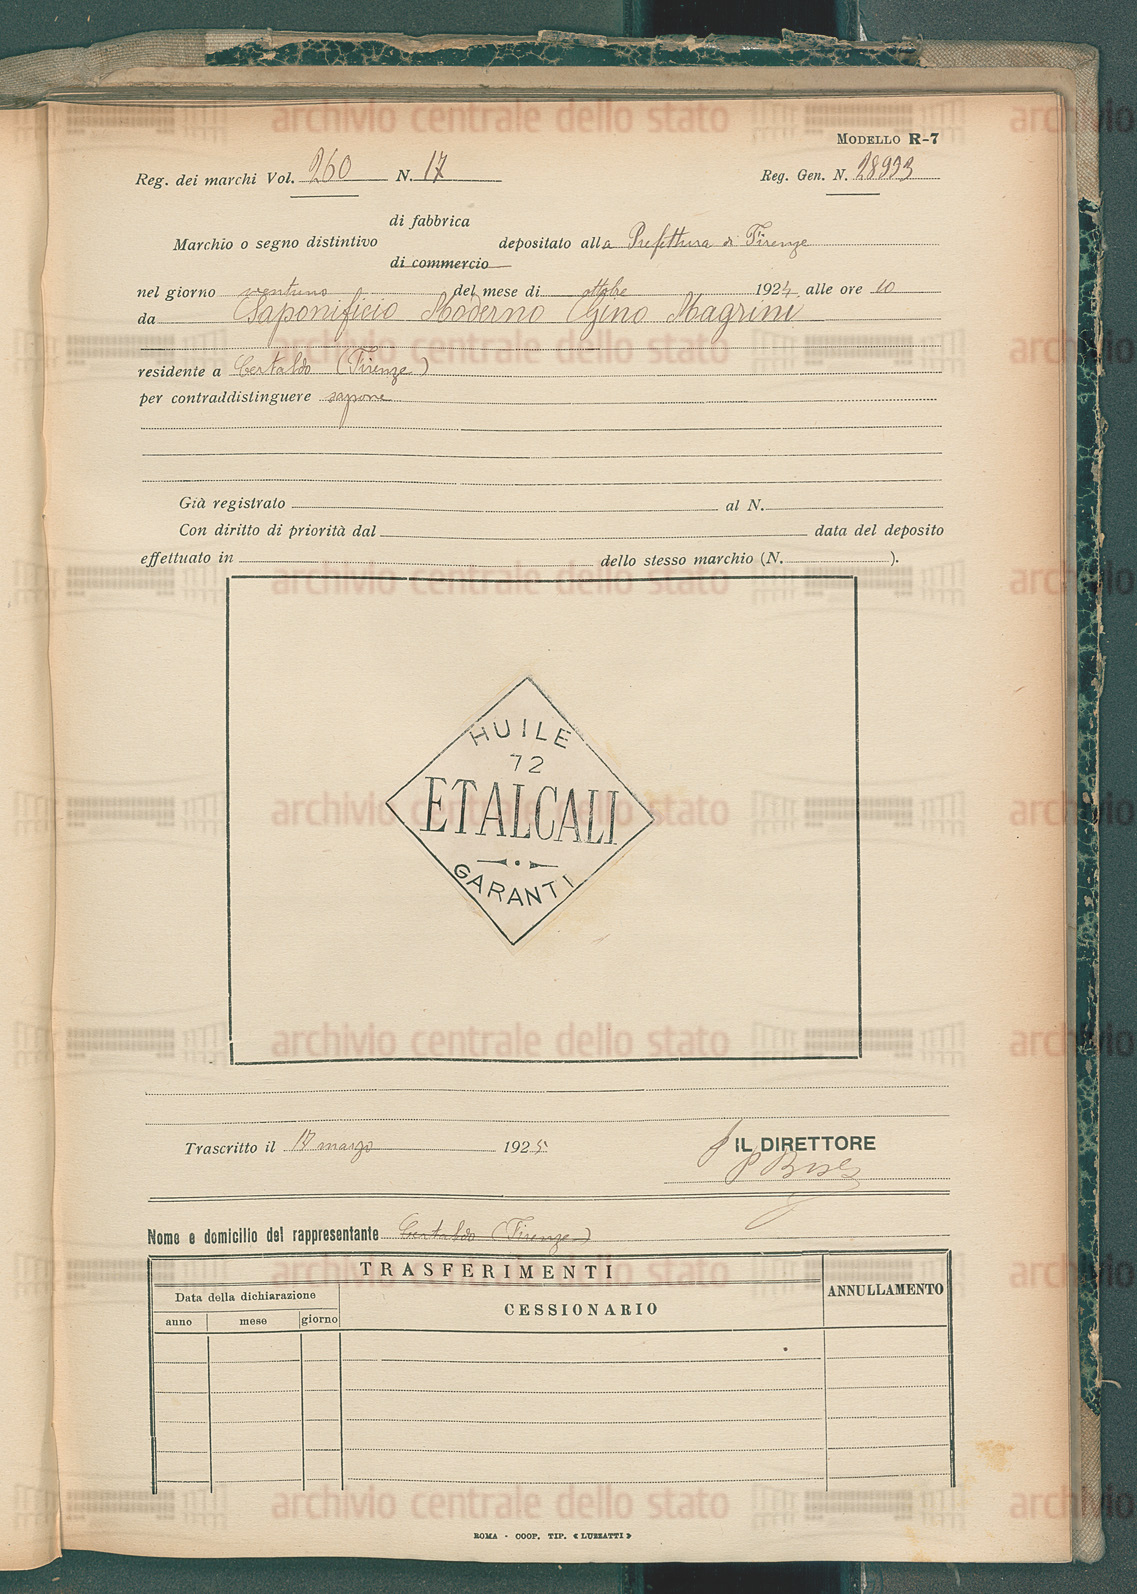 MODELLO R-7
Reg. dei marchi Vol. 260 N. 17 Reg. Gen. N. 28993
di fabbrica
Marchio o segno distintivo depositato alla Prefettura di Firenze
di commercio
nel giorno ventuno del mese di ottobre 1924 alle ore 10
da Saponificio Moderno Gino Magrini
residente a Certaldo (Firenze)
per contraddistinguere sapone
Già registrato al N.
Con diritto di priorità dal data del deposito
effettuato in dello stesso marchio (N. ).
HUILE
72
ETALCALI
GARANTI
Trascritto il 17 marzo 1925 IL DIRETTORE
Nome e domicilio del rappresentante Certaldo (Firenze)
TRASFERIMENTI
ANNULLAMENTO
Data della dichiarazione
CESSIONARIO
anno mese giorno
ROMA - COOP. TIP. « LUZZATTI »
archivio centrale dello stato